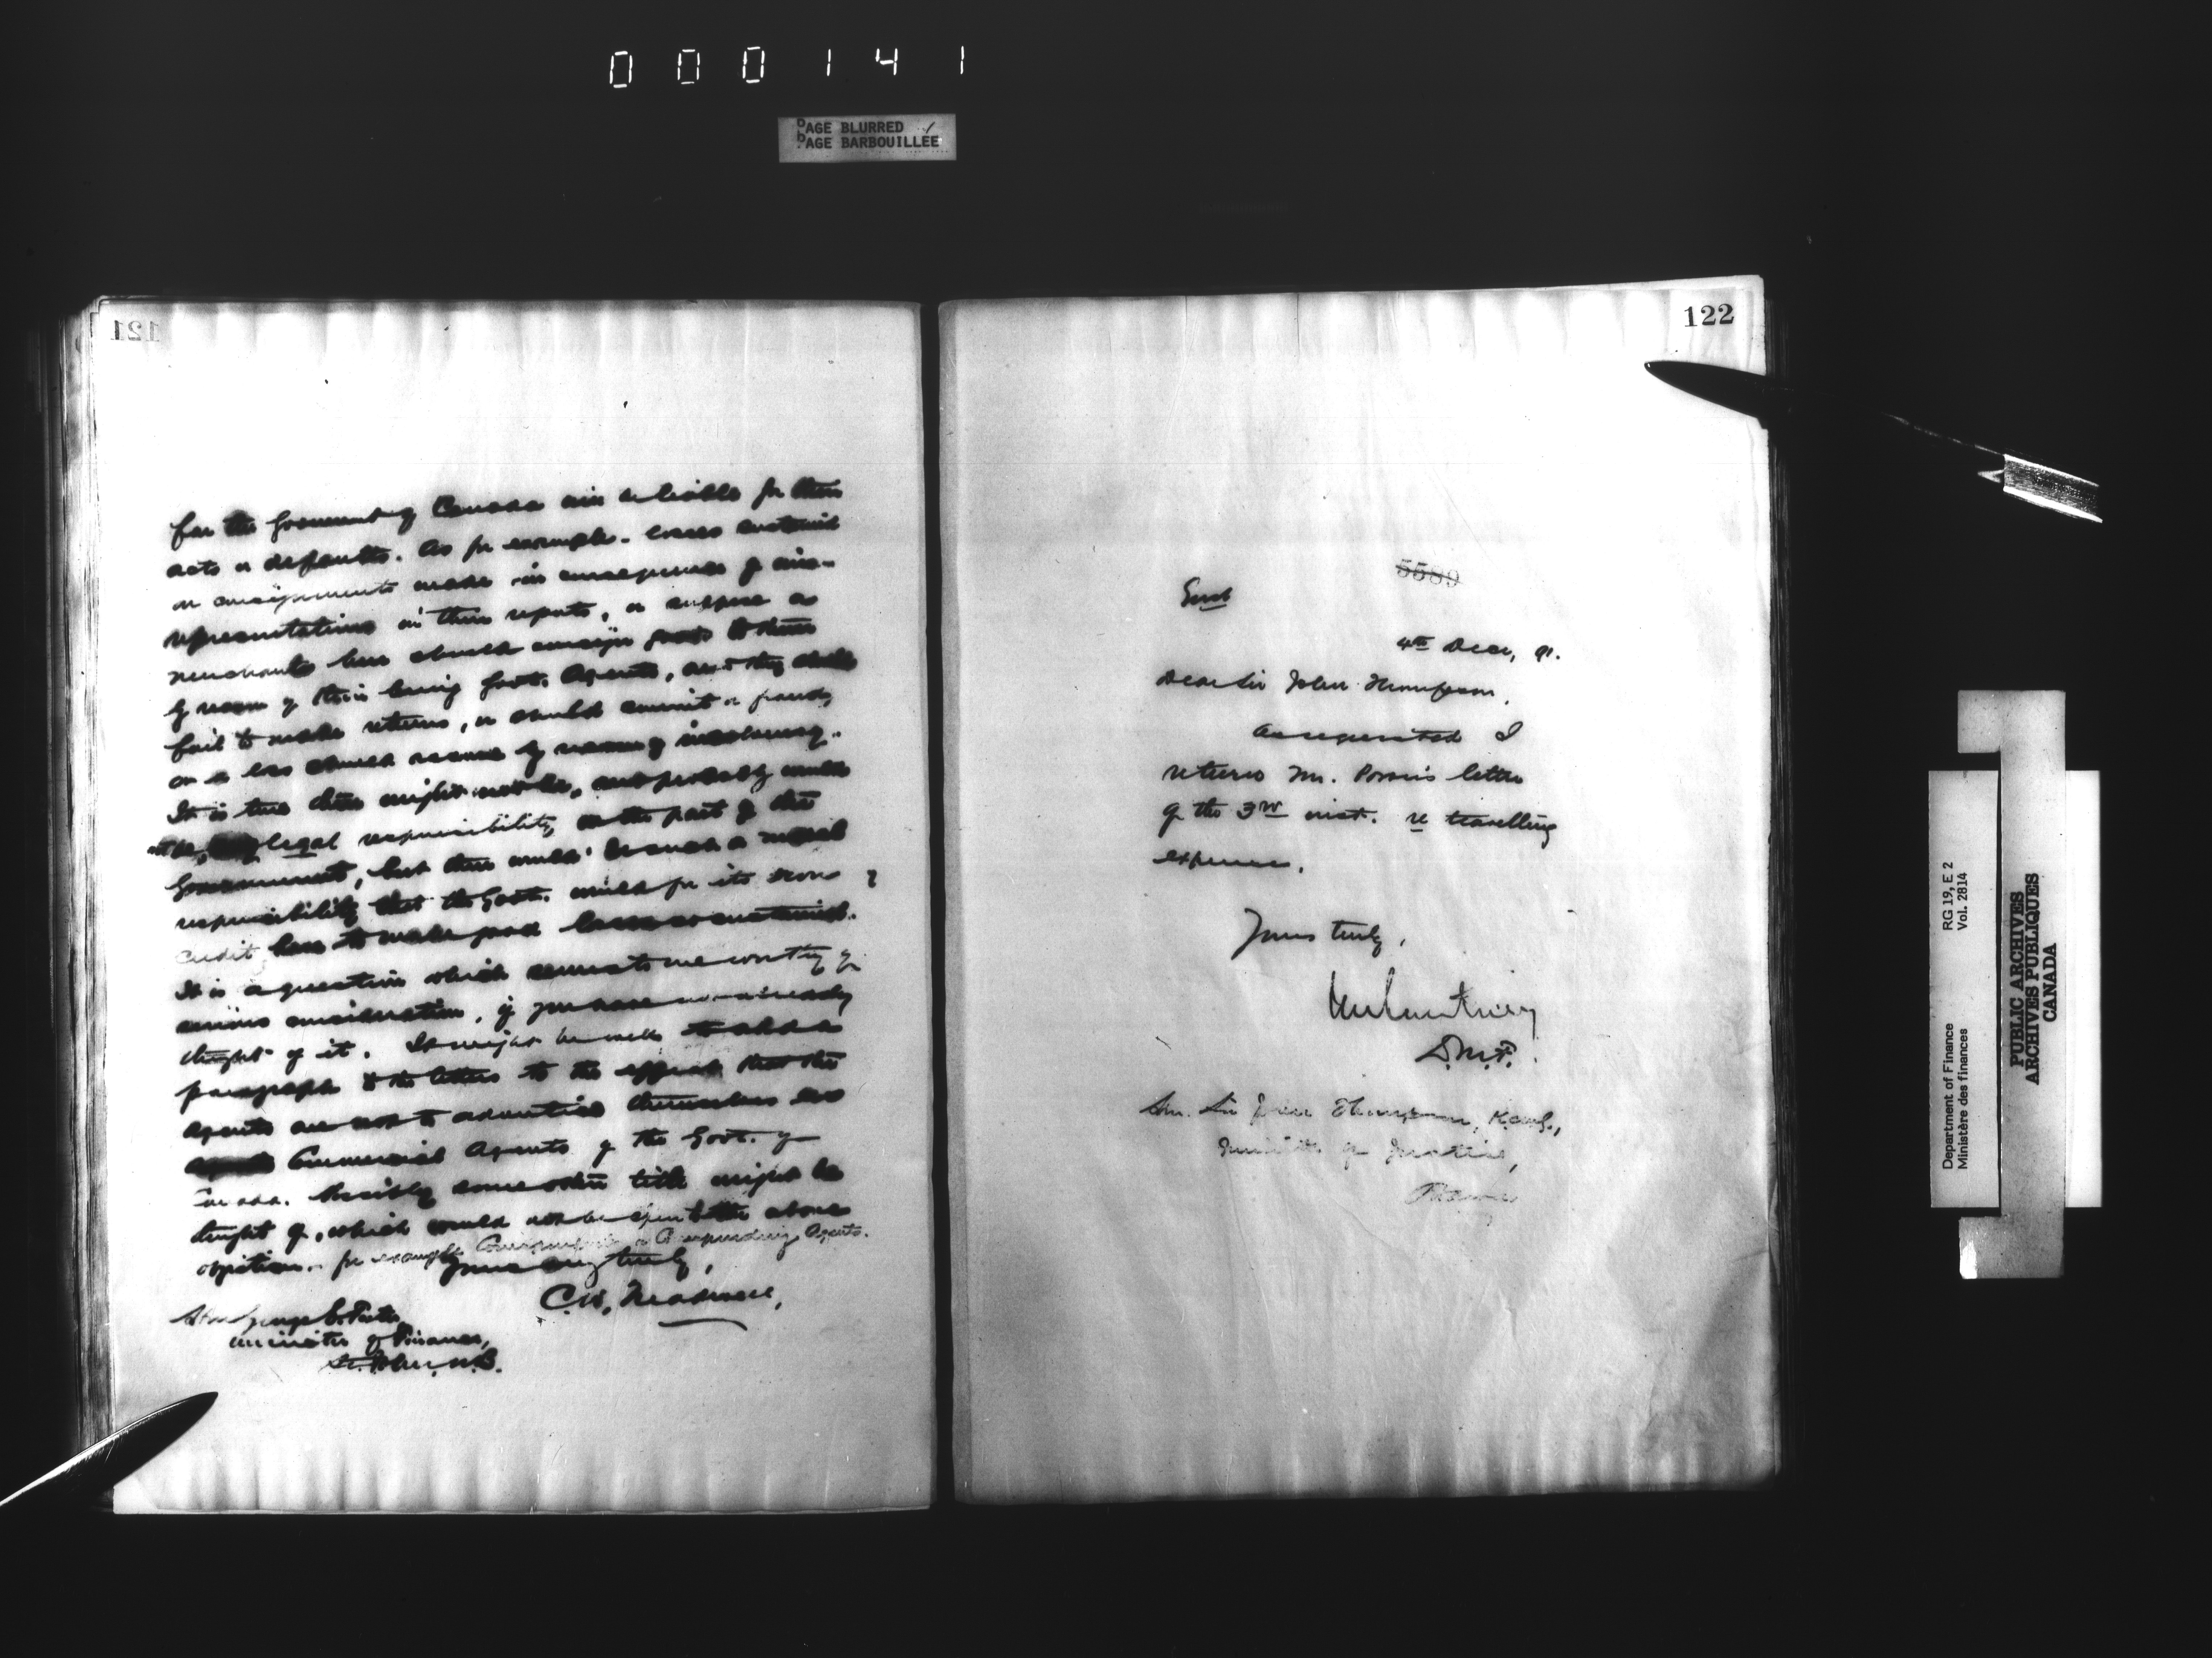 000141
PAGE BLURRED
PAGE BARBOUILLÉE
121
far the Government of Canada will be liable for their
acts or defaults. As for example. losses sustained
on consignments made in consequence of mis-
representations in their reports, or suppose as
merchants here should consign goods to them
by reason of their being Govt. Agents, and they should
fail to make returns, or should commit a fraud,
or a loss should resume by reason of insolvency.
It is true there might not be, and probably would
not be, legal responsibility on the part of the
Government, but there would be such a moral
responsibility that the Govt. would for its own
credit have to make good losses so sustained.
It is a question which seems to me worthy of
serious consideration, if you have not already
thought of it. It might be well to add a
paragraph to the letters to the effect that the
agents are not to advertise themselves as
Commercial Agents of the Govt. of
Canada. Possibly some other title might be
thought of, which would not be open to the above
objection. for example Corresponding Agents.
Yours very truly,
C.W. Treadwell,
Hon George E. Foster
Minister of Finance,
St. John, N.B.
122
5589
4th Decr, 91.
Dear Sir John Thompson,
As requested I
return Mr. Power's letter
of the 3rd inst. re travelling
expenses.
Yours truly,
JM Courtney
D.M.F.
Hon. Sir John Thompson, K.C.M.G.,
Minister of Justice,
Ottawa
Department of Finance RG 19, E 2
Ministère des finances Vol. 2814
PUBLIC ARCHIVES
ARCHIVES PUBLIQUES
CANADA